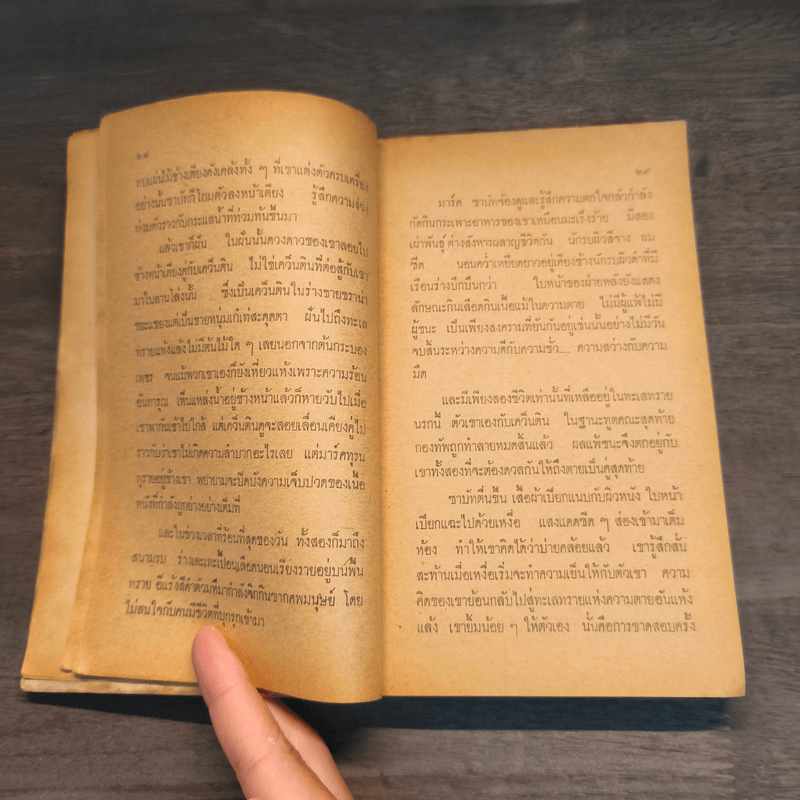 ๒๘
ทบแผ่นไม้ข้างเตียงดังเคล้งทั้ง ๆ ที่เขาแต่งตัวครบเครื่อง
อย่างนั้นซาบัทก็โถมตัวลงหน้าเตียง รู้สึกความง่วง
ท่วมตัวราวกับกระแสน้ำที่ท่วมทันขึ้นมา
แล้วเขาก็ฝัน ในฝันนั้นดวงดาวของเขาลอยไป
ข้างหน้าเตียงคู่กับเคว็นติน ไม่ใช่เคว็นตินที่ต่อสู้กับเขา
มาในลานโล่งนั้น ซึ่งเป็นเคว็นตินในร่างชายชราน่า
ขยะแขยงแต่เป็นชายหนุ่มเก๋เท่สะดุดตา ฝันไปถึงทะเล
ทรายแห้งแล้งไม่มีต้นไม้ใด ๆ เลยนอกจากต้นกระบอง
เพชร จนแม้พวกเขาเองก็ยังเหี่ยวแห้งเพราะความร้อน
อันทารุณ เห็นแหล่งน้ำอยู่ข้างหน้าแล้วก็หายวับไปเมื่อ
เขาพากันเข้าไปใกล้ แต่เคว็นตินดูจะลอยเลื่อนเคียงคู่ไป
ราวกับว่าเขาไม่เกิดความลำบากอะไรเลย แต่มาร์คทุรน
ทุรายอยู่ข้างเขา พยายามจะปิดบังความเจ็บปวดของเนื้อ
หนังที่กำลังถูกย่างอย่างเต็มที่
และในช่วงเวลาที่ร้อนที่สุดของวัน ทั้งสองก็มาถึง
สนามรบ ร่างเละเทะเปื้อนเลือดนอนเรียงรายอยู่บนพื้น
ทราย อีแร้งสีดำตัวมหึมากำลังจิกกินซากศพมนุษย์ โดย
ไม่สนใจกับคนมีชีวิตที่บุกรุกเข้ามา
๒๙
มาร์ค ซาบัทจ้องดูและรู้สึกความตกใจกลัวกำลัง
กัดกินกระเพาะอาหารของเขาเหมือนมะเร็งร้าย มีสอง
เผ่าพันธุ์ต่างสังหารผลาญชีวิตกัน นักรบผิวสีจาง ผม
ซีด นอนคว่ำเหยียดยาวอยู่เคียงข้างนักรบผิวดำที่มี
เรือนร่างบึกบึนกว่า ใบหน้าของฝ่ายหลังยังแสดง
ลักษณะกินเลือดกินเนื้อแม้ในความตาย ไม่มีผู้แพ้ไม่มี
ผู้ชนะ เป็นเพียงสงครามที่ยันกันอยู่เช่นนั้นอย่างไม่มีวัน
จบสิ้นระหว่างความดีกับความชั่ว.... ความสว่างกับความ
มืด
และมีเพียงสองชีวิตเท่านั้นที่เหลืออยู่ในทะเลทราย
นรกนี้ ตัวเขาเองกับเคว็นติน ในฐานะทูตคณะสุดท้าย
กองทัพถูกทำลายหมดสิ้นแล้ว ผลแพ้ชนะจึงตกอยู่กับ
เขาทั้งสองที่จะต้องดวลกันให้ถึงตายเป็นคู่สุดท้าย
ซาบัทตื่นขึ้น เสื้อผ้าเปียกแนบกับผิวหนัง ใบหน้า
เปียกแฉะไปด้วยเหงื่อ แสงแดดซีด ๆ ส่องเข้ามาเต็ม
ห้อง ทำให้เขาคิดได้ว่าบ่ายคล้อยแล้ว เขารู้สึกสั่น
สะท้านเมื่อเหงื่อเริ่มจะทำความเย็นให้กับตัวเขา ความ
คิดของเขาย้อนกลับไปสู่ทะเลทรายแห่งความตายอันแห้ง
แล้ง เขายิ้มน้อย ๆ ให้ตัวเอง นั่นคือการขาดสอบครั้ง